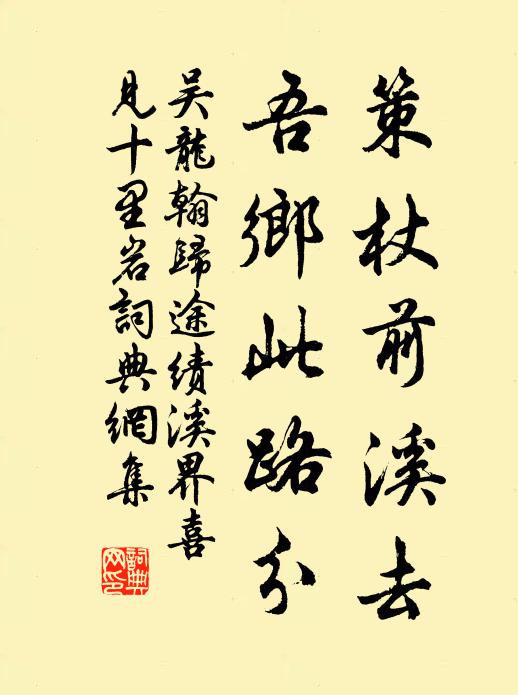 策杖前溪去
吾鄉此路分
吳龍翰歸途績溪界喜
見十里岩詞典網集
詞典
网印